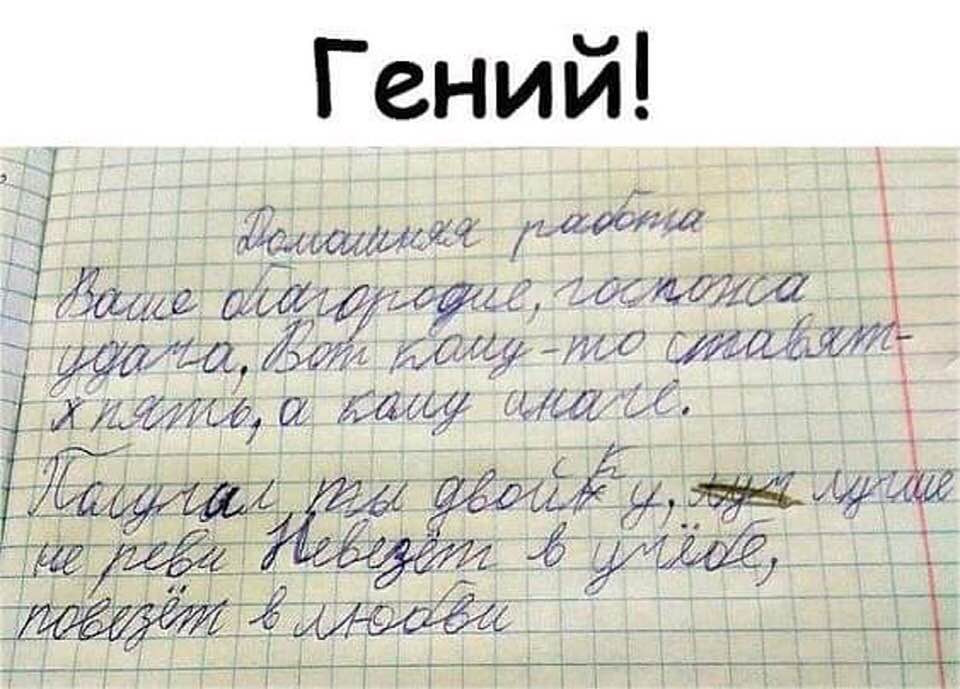 Гений!
Домашняя работа
Ваше благородие, госпожа
удача, Вот кому-то ставят-
х пять, а кому иначе.
Получал ты двойку, лучше
не реви Невезёт в учёбе,
повезёт в любви